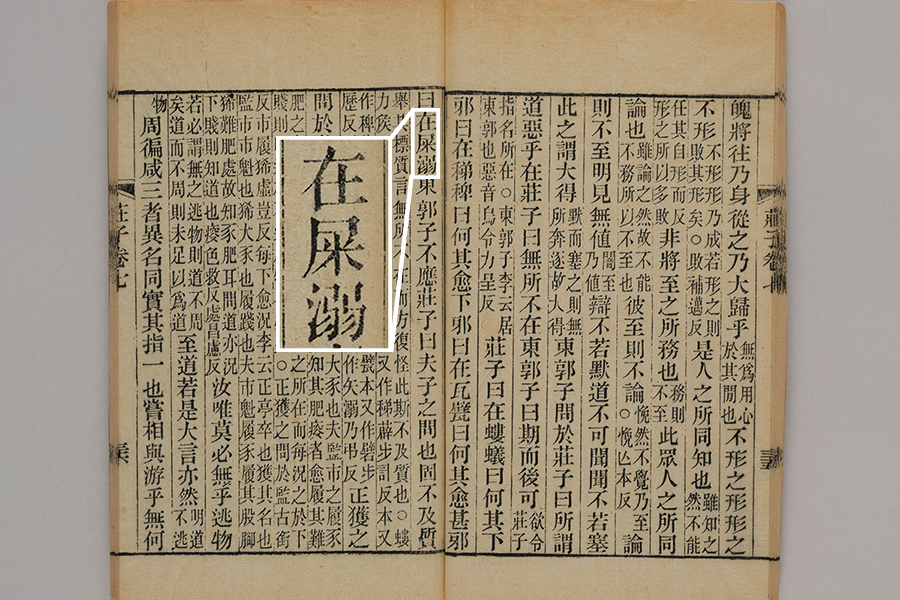 魄將往乃身從之乃大歸乎無爲用心於其閒也不形之形形之
不形不形形乃成若形之則敗其形矣○敗補邁反是人之所同知也雖知之然不能
任其自形而反形之所以多敗非將至之所務也務則不至此眾人之所同
論也雖論之然故不能不務所以不至也彼至則不論悗然不覺乃至○悗亾本反論
則不至明見無值闇至乃值辯不若默道不可聞聞不若塞
此之謂大得默而塞之則無所奔逐故大得東郭子問於莊子曰所謂
道惡乎在莊子曰無所不在東郭子曰期而後可欲令莊子
指名所在○東郭子李云居東郭也惡音烏令力呈反莊子曰在螻蟻曰何其下
邪曰在稊稗曰何其愈下邪曰在瓦甓曰何其愈甚邪
莊子卷七
曰在屎溺東郭子不應莊子曰夫子之問也固不及質
舉其標質言無所不在而方復怪此斯不及質也○螻力矦又作稊薜步計反本又
作稗甓本又作礕步歷反作矢溺乃弔反正獲之
問於大豕也夫監市之履豕知其肥瘦者愈履其難
肥之之所在而每況之於下賤則○正獲之問於監古銜
反市履豨虛豈反每下愈況李云正亭卒也獲其名也監市市魁也豨大豕也履踐也夫市魁履豕履其股脚
豨難肥處故知豕肥耳問道亦況下賤則知道也瘦色救反處昌慮反汝唯莫必無乎逃物
若必謂無之逃物則道不周矣道而不周則未足以爲道至道若是大言亦然明道不逃
物周徧咸三者異名同實其指一也嘗相與游乎無何
莊子卷七
在屎溺